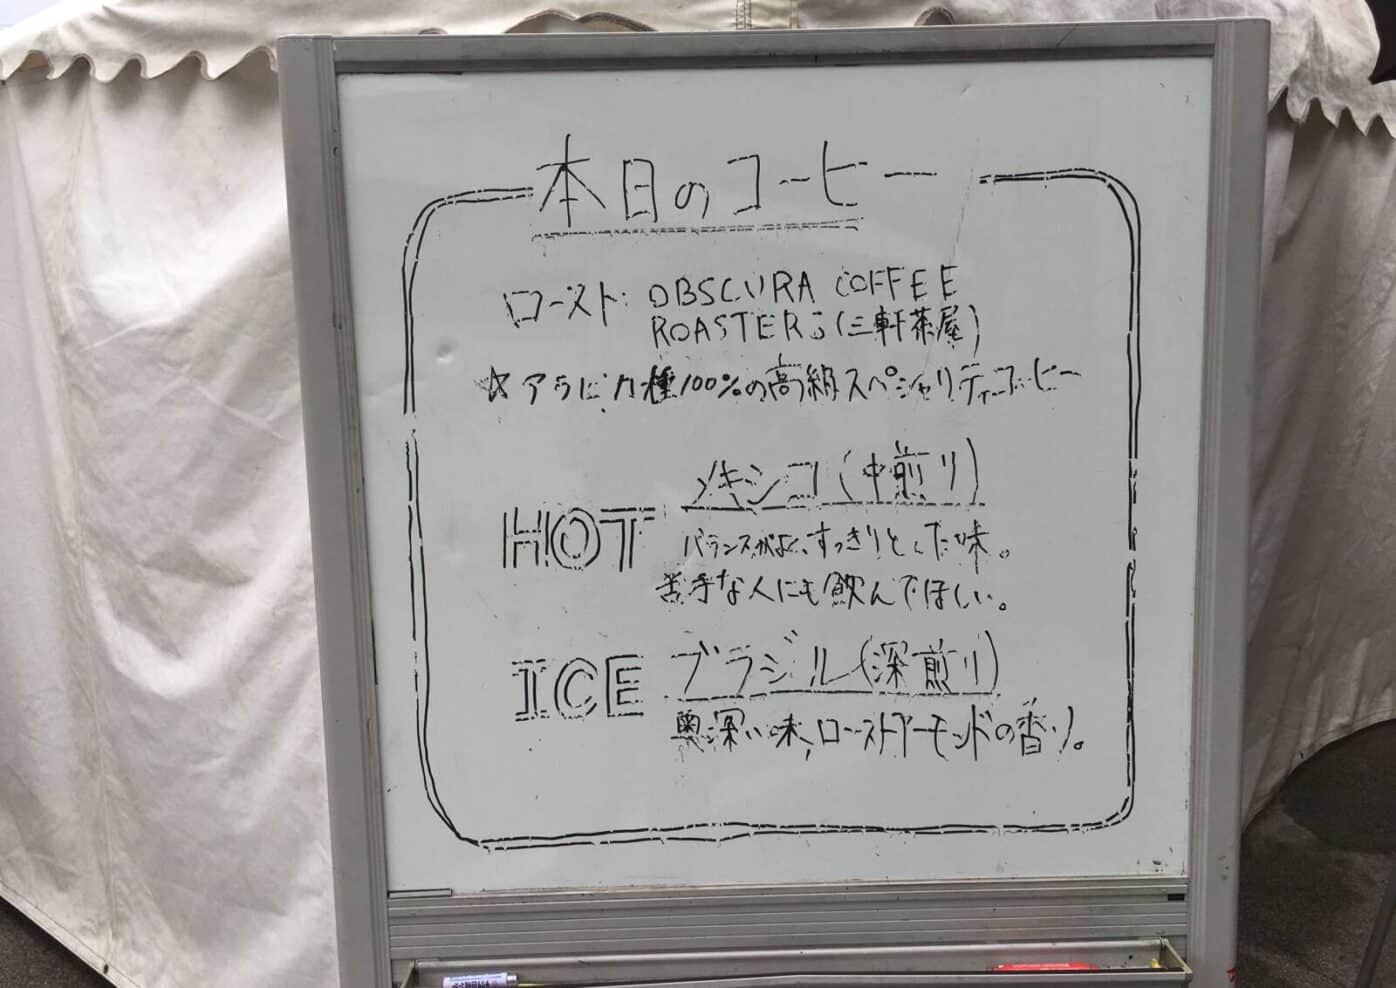 本日のコーヒー
ロースト: OBSCURA COFFEE
ROASTERS(三軒茶屋)
☆アラビカ種100%の高級スペシャリティコーヒー
HOT
メキシコ(中煎り)
バランスがよく、すっきりとした味。
苦手な人にも飲んでほしい。
ICE
ブラジル(深煎り)
奥深い味、ローストアーモンドの香り。